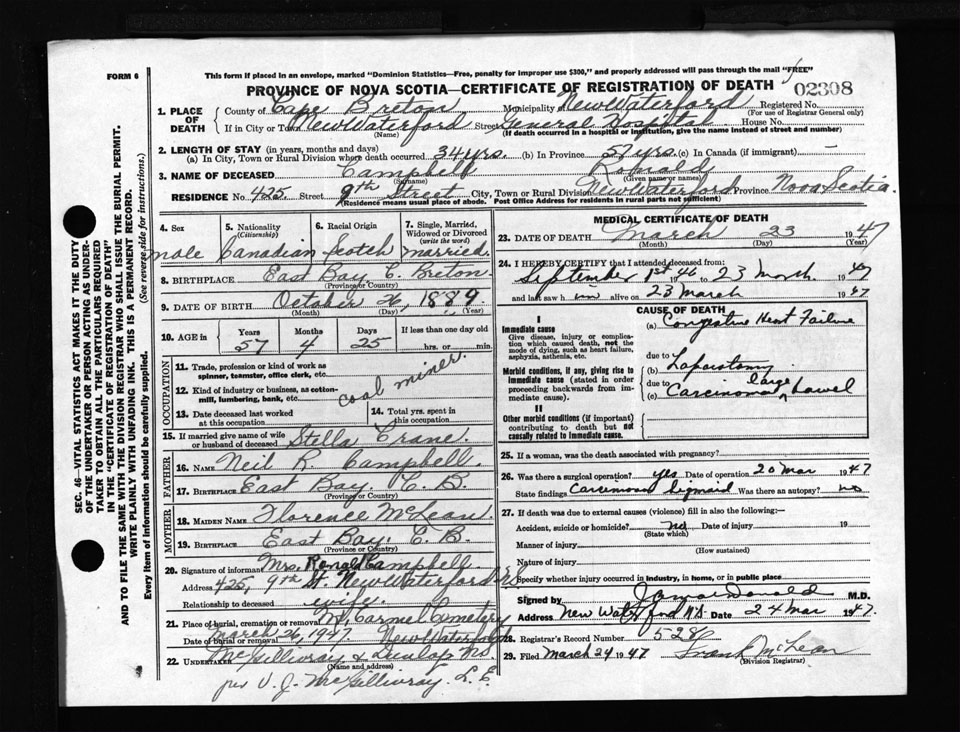 FORM 6
This form if placed in an envelope, marked "Dominion Statistics—Free, penalty for improper use $300," and properly addressed will pass through the mail "FREE"
PROVINCE OF NOVA SCOTIA—CERTIFICATE OF REGISTRATION OF DEATH 02308
1. PLACE OF DEATH County of Cape Breton Municipality of New Waterford Registered No.
(For use of Registrar General only)
If in City or Town New Waterford Street General Hospital House No.
(Name) (If death occurred in a hospital or institution, give the name instead of street and number)
2. LENGTH OF STAY (in years, months and days)
(a) In City, Town or Rural Division where death occurred 34 yrs. (b) In Province 57 yrs. (c) In Canada (if immigrant) —
3. NAME OF DECEASED Campbell Ronald
(Surname) (Given name or names)
RESIDENCE No. 425 Street 9th Street City, Town or Rural Division New Waterford Province Nova Scotia.
(Residence means usual place of abode. Post Office Address for residents in rural parts not sufficient)
4. Sex 5. Nationality (Citizenship) 6. Racial Origin 7. Single, Married, Widowed or Divorced (write the word)
male Canadian Scotch married.
8. BIRTHPLACE East Bay C. Breton
(Province or Country)
9. DATE OF BIRTH October 26, 1889.
(Month) (Day) (Year)
10. AGE in Years Months Days If less than one day old
57 4 25 hrs. or min.
OCCUPATION
11. Trade, profession or kind of work as spinner, teamster, office clerk, etc.
12. Kind of industry or business, as cotton-mill, lumbering, bank, etc.
coal miner.
13. Date deceased last worked at this occupation
14. Total yrs. spent in this occupation
15. If married give name of wife or husband of deceased Stella Crane.
FATHER
16. NAME Neil R. Campbell.
17. BIRTHPLACE East Bay, C. B.
(Province or Country)
MOTHER
18. MAIDEN NAME Florence McLean
19. BIRTHPLACE East Bay. C. B.
(Province or Country)
20. Signature of informant Mrs. Ronald Campbell.
Address 425, 9th St. New Waterford NS
Relationship to deceased wife.
21. Place of burial, cremation or removal Mt. Carmel Cemetery
Date of burial or removal March 26, 1947. New Waterford
22. UNDERTAKER McGillivray & Dunlap NS
(Name and address)
per V. J. McGillivray. L. E.
MEDICAL CERTIFICATE OF DEATH
23. DATE OF DEATH March 23 1947
(Month) (Day) (Year)
24. I HEREBY CERTIFY that I attended deceased from:
September 1st 1946 to 23 March 1947
and last saw h im alive on 23 March 1947
CAUSE OF DEATH
I
Immediate cause
Give disease, injury or complication which caused death, not the mode of dying, such as heart failure, asphyxia, asthenia, etc.
(a) Congestive Heart Failure
due to
Morbid conditions, if any, giving rise to immediate cause (stated in order proceeding backwards from immediate cause).
(b) Laparotomy
due to
(c) Carcinoma large bowel
II
Other morbid conditions (if important) contributing to death but not causally related to immediate cause.
25. If a woman, was the death associated with pregnancy?
26. Was there a surgical operation? yes Date of operation 20 Mar 1947
State findings Carcinoma Sigmoid Was there an autopsy? no
27. If death was due to external causes (violence) fill in also the following:—
Accident, suicide or homicide? no Date of injury 19
(State which)
Manner of injury
(How sustained)
Nature of injury
Specify whether injury occurred in industry, in home, or in public place
Signed by M.D.
Address New Waterford N.S. Date 24 Mar 1947.
28. Registrar's Record Number 528
29. Filed March 24 1947 Frank McLean
(Division Registrar)
SEC. 46—VITAL STATISTICS ACT MAKES IT THE DUTY
OF THE UNDERTAKER OR PERSON ACTING AS UNDER-
TAKER TO OBTAIN ALL THE PARTICULARS REQUIRED
IN THE "CERTIFICATE OF REGISTRATION OF DEATH"
AND TO FILE THE SAME WITH THE DIVISION REGISTRAR WHO SHALL ISSUE THE BURIAL PERMIT.
WRITE PLAINLY WITH UNFADING INK. THIS IS A PERMANENT RECORD.
Every item of information should be carefully supplied. (See reverse side for instructions.)